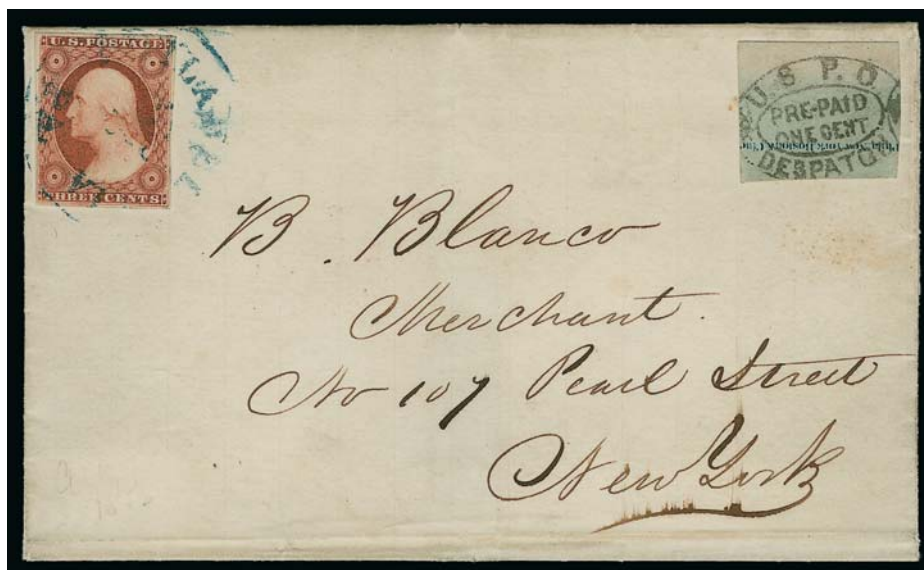 U.S. POSTAGE
THREE CENTS
U S P. O.
PRE-PAID
ONE CENT
DESPATCH
B. Blanco
Merchant.
No 107 Pearl Street
New York